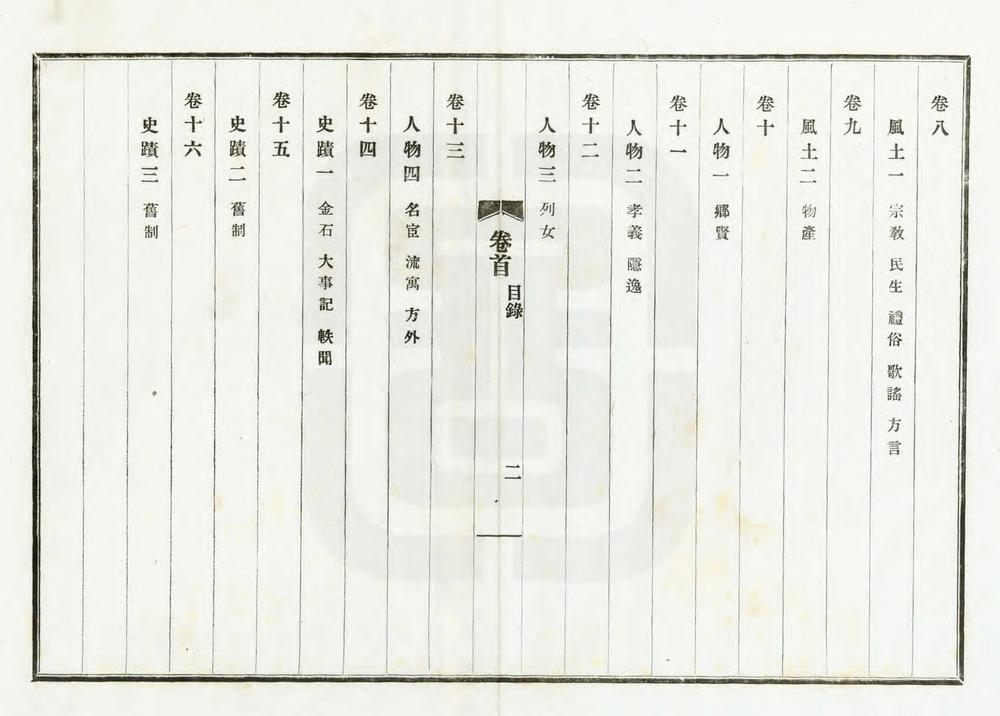 卷八
風土一 宗敎 民生 禮俗 歌謠 方言
卷九
風土二 物產
卷十
人物一 鄉賢
卷十一
人物二 孝義 隱逸
卷十二
人物三 列女
卷首 目錄 二
卷十三
人物四 名宦 流寓 方外
卷十四
史蹟一 金石 大事記 軼聞
卷十五
史蹟二 舊制
卷十六
史蹟三 舊制